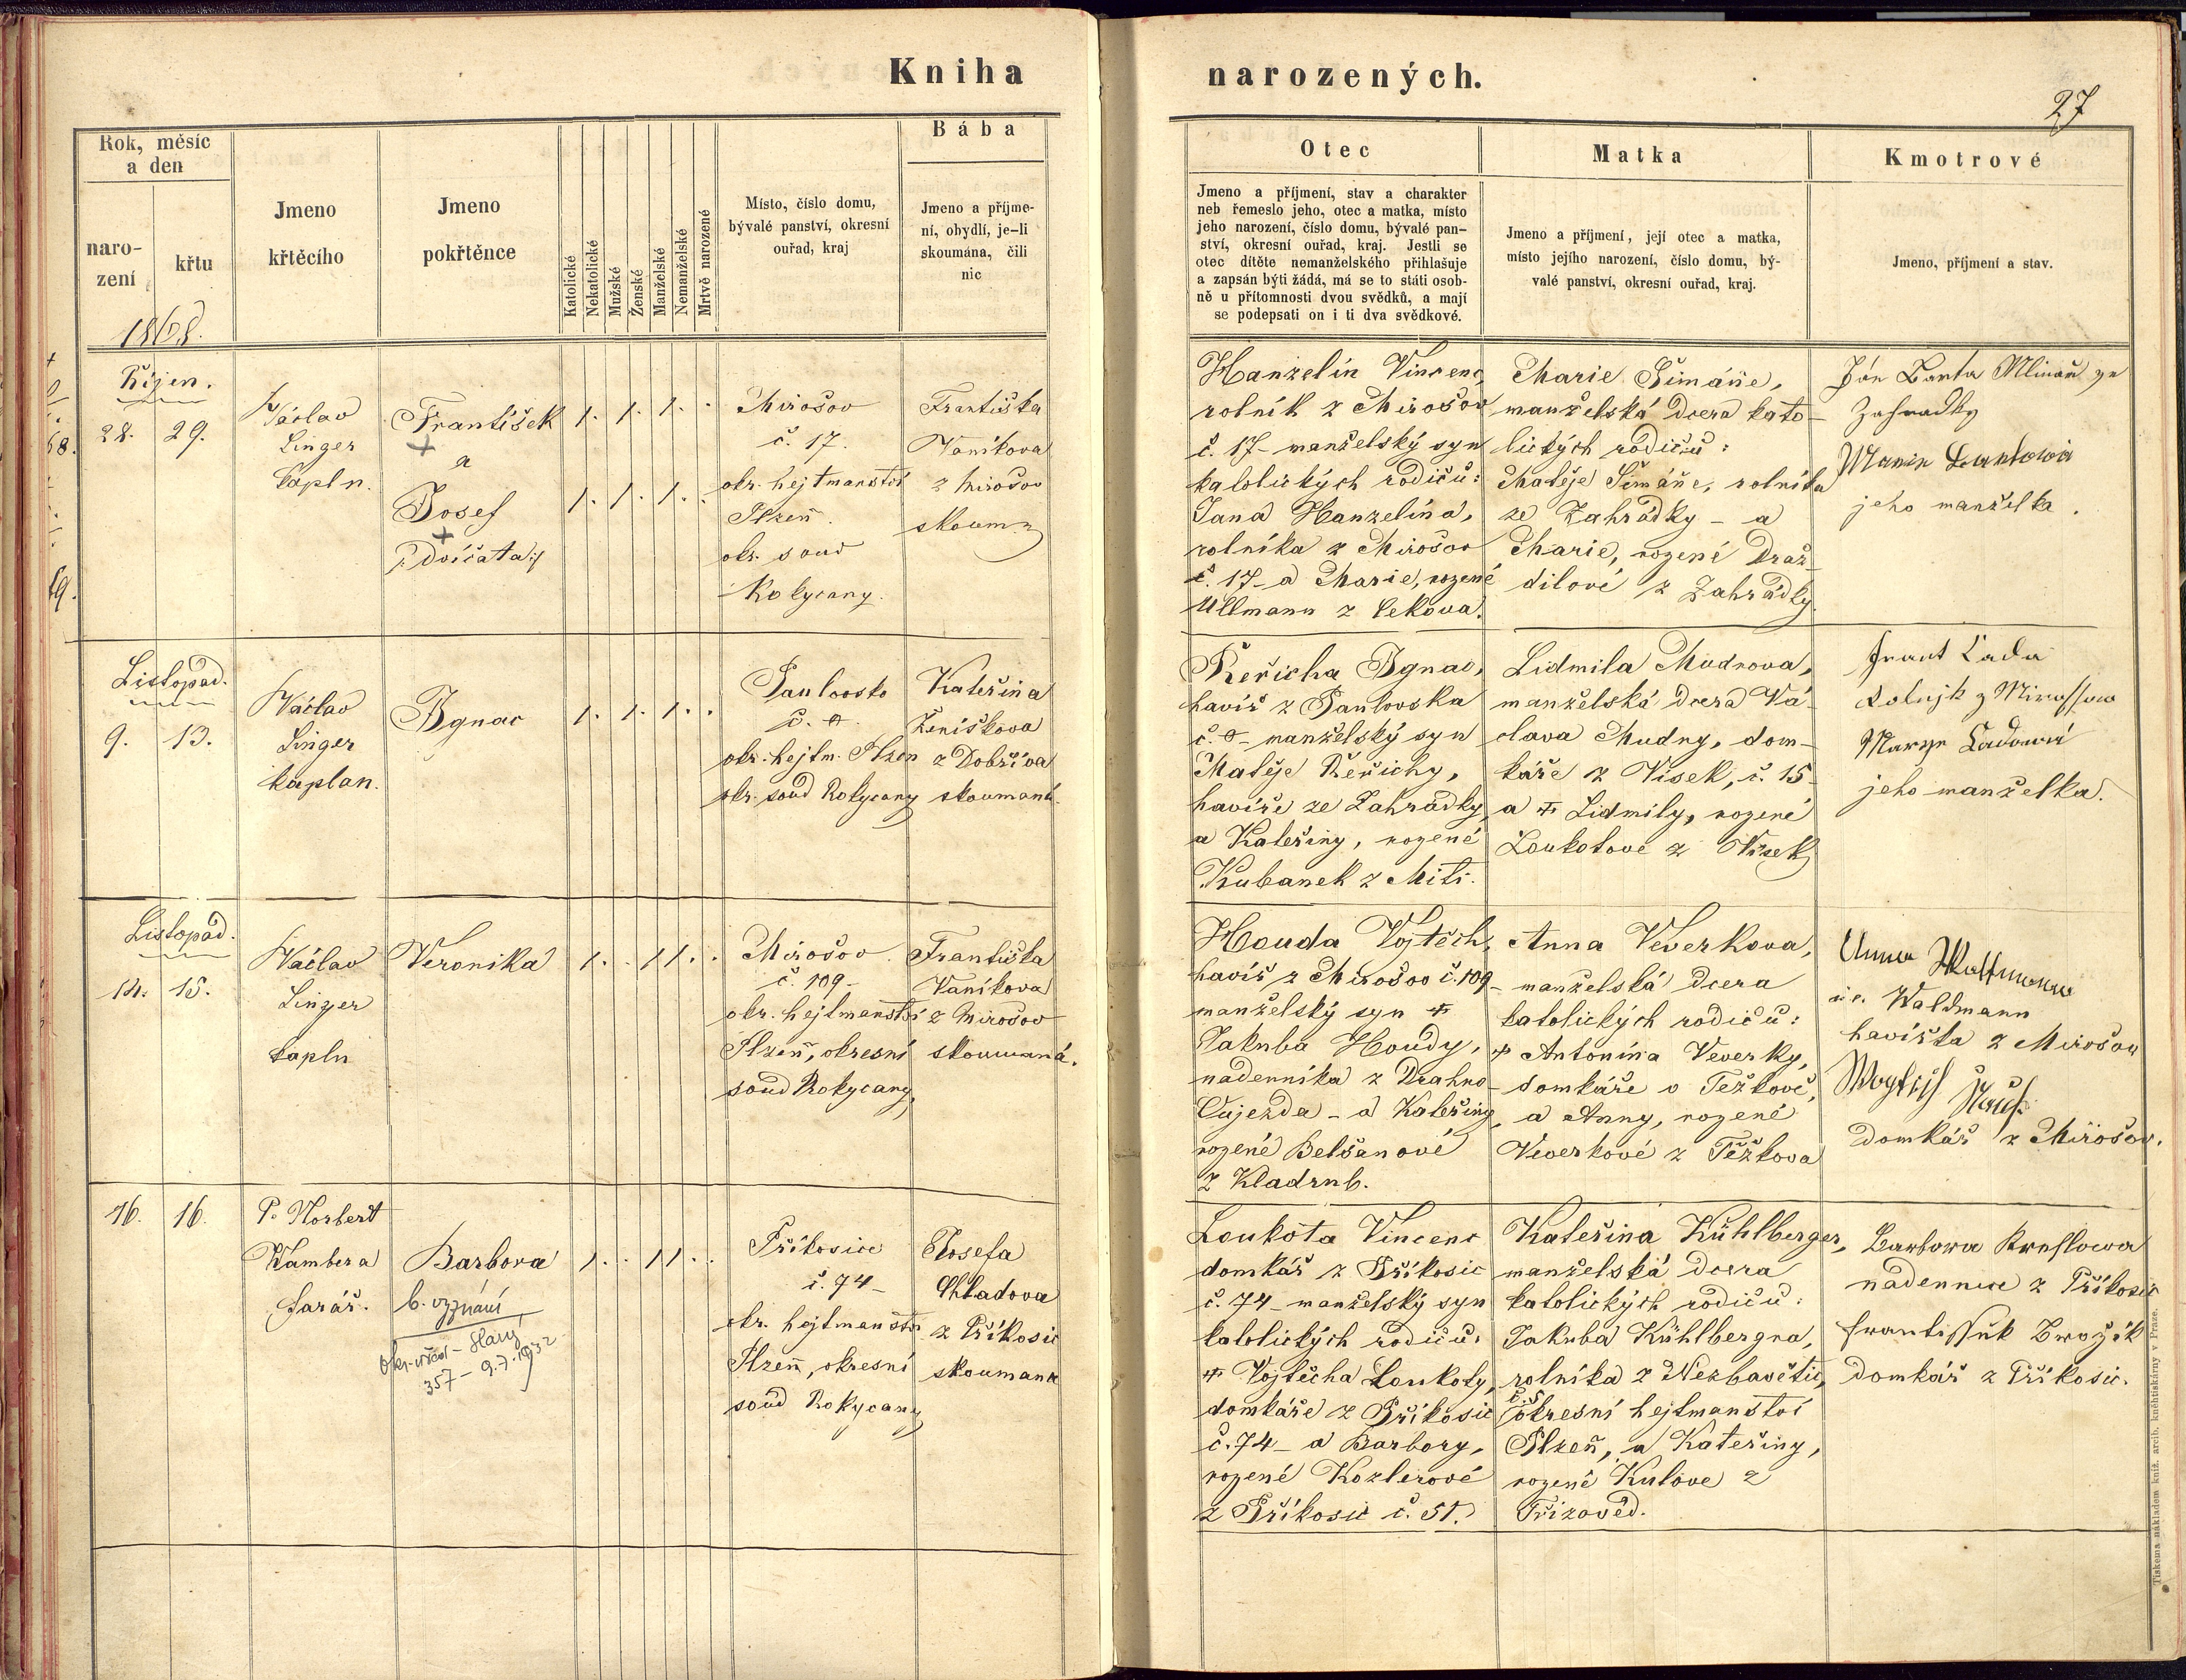 Kniha narozených.
27
Rok, měsíc
a den
naro-
zení
křtu
Jmeno
křtěcího
Jmeno
pokřtěnce
Katolické
Nekatolické
Mužské
Ženské
Manželské
Nemanželské
Mrtvě narozené
Místo, číslo domu,
bývalé panství, okresní
ouřad, kraj
Bába
Jmeno a příjme-
ní, obydlí, je-li
skoumána, čili
nic
Otec
Jmeno a příjmení, stav a charakter
neb řemeslo jeho, otec a matka, místo
jeho narození, číslo domu, bývalé pan-
ství, okresní ouřad, kraj. Jestli se
otec dítěte nemanželského přihlašuje
a zapsán býti žádá, má se to státi osob-
ně u přítomnosti dvou svědků, a mají
se podepsati on i ti dva svědkové.
Matka
Jmeno a příjmení, její otec a matka,
místo jejího narození, číslo domu, bý-
valé panství, okresní ouřad, kraj.
Kmotrové
Jmeno, příjmení a stav.
1868.
Říjen.
28. 29.
Václav
Linger
kapln.
František
+
a
Josef
+
dvíčata
1. 1. 1. .
1. 1. 1. .
Mirošov
č. 17.
okr. hejtmanství
Plzeň.
okr. soud
Rokycany.
Františka
Vaníkova
z Mirošov
skoum.
Hanzelín Vincenc,
rolník z Mirošov
č. 17 - manželský syn
katolických rodičů:
Jana Hanzelína,
rolníka z Mirošov
č. 17 - a Marie, rozené
Ullmann z Cekova.
Marie Šimáňe,
manželská dcera kato-
lických rodičů:
Matěje Šimáňe, rolníka
ze Zahrádky - a
Marie, rozené Draž-
dilové z Zahrádky.
Ján Barta Mlinař ze
Zahradky
Marie Bartowá
jeho manželka.
Listopad.
9. 13.
Václav
Linger
kaplan.
Ignac
1. 1. 1. .
Pavlovsko
okr. hejtm. Plzen
okr. soud Rokycany
Kateřina
Ženíškova
z Dobřiva
skoumaná.
Řeřicha Ignac,
havíř z Pavlovska
manželský syn
Matěje Řeřichy,
havíře ze Zahrádky,
a Kateřiny, rozené
Kubanek z Míti.
Lidmila Mudrova,
manželská dcera Vá-
clava Mudry, dom-
káře z Vísek, č. 15 -
a + Lidmily, rozené
Loukotove z Vísek
Frant Lada
Rolnjk z Mirossowa
Marye Ladowá
jeho manželka.
Listopad.
14. 15.
Václav
Linger
kapln
Veronika
1. . 1 1. .
Mirošov.
č. 109 -
okr. hejtmanství
Plzeň, okresní
soud Rokycany,
Františka
Vaníkova
z Mirošov
skoumaná.
Houda Vojtěch,
havíř z Mirošov č. 109 -
manželský syn +
Jakuba Houdy,
nadenníka z Drahno-
Oujezda - a Kateřiny
rozené Belšanové
z Kladrub.
Anna Veverkova,
manželská dcera
katolických rodičů:
+ Antonína Veverky,
domkáře v Težkově,
a Anny, rozené
Veverkové z Těžkova
Anna
Waldmann
havířka z Mirošov
domkář z Mirošov.
16. 16.
P. Norbert
Kambera
farář.
Barbora
b. vyznání
Okr. úřad - Slaný
357 - 9.7.1932
1. . 1 1. .
Příkosice
č. 74 -
okr. hejtmanství
Plzeň, okresní
soud Rokycany
Josefa
Chladova
z Příkosic
skoumana
Loukota Vincenc
domkář z Příkosic
č. 74 - manželský syn
katolických rodičů:
+ Vojtěcha Loukoty,
domkáře z Příkosic
č. 74 - a Barbory,
rozené Kozlerové
z Příkosic č. 51.
Kateřina Kühlberger,
manželská dcera
katolických rodičů:
Jakuba Kühlbergra,
rolníka z Nezbavětic,
okresní hejtmanství
Plzeň, a Kateřiny,
rozené Kulove z
Barbora
nadennice z Příkosic
Frantissek Brožik
domkář z Příkosic.
Tiskema nákladem kníž. arcib. kněhtiskárny v Praze.